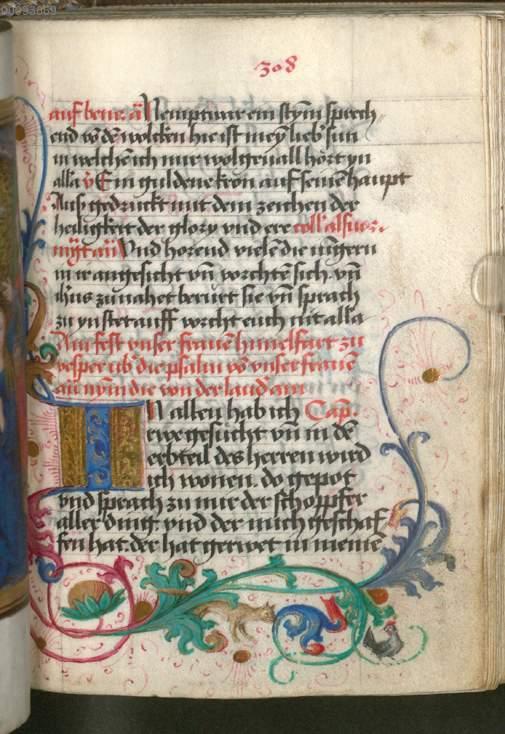 308
auf bene: añ Nempt war ein stym sprech
end vō dē wolcken hie ist meyn lieb sun
in welchē ich mir wolgeuall hört yn
alla v̄ Ein guldene kron auf seinē haupt
Aus gedruckt mit dem zeichen der
heiligkeit der glory vnd ere coll' als
Vnd horend vielē die iūgern
in ir angesicht vn̄ vorchtē sich. vn̄
ihūs zu nahet beruet sie vn̄ sprach
zu yn stet auff vorcht euch nit alla
Am fest vnser frauē himelfart zu
vesper vb' die psalm vō vnser frauē
die von der laud am
IN allen hab ich Cap.
rwe gesucht vn̄ in dē
erbteil des herren wird
ich wonen. do gepot
vnd sprach zu mir der schöpffer
aller ding. vnd der mich geschaf
fen hat. der hat gerwet in meinē